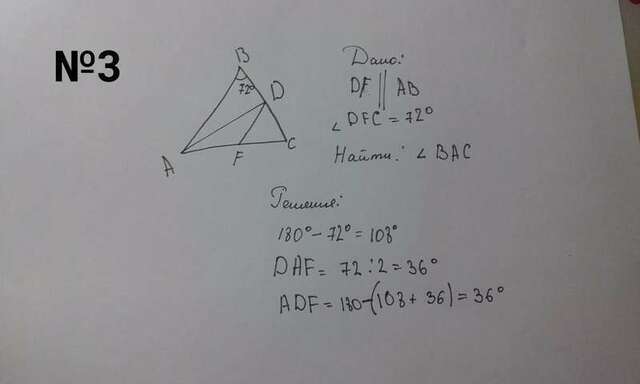 №3
B
72°
D
A
F
C
Дано:
DF || AB
∠ DFC = 72°
Найти: ∠ BAC
Решение:
180° - 72° = 108°
DAF = 72 : 2 = 36°
ADF = 180 - (108 + 36) = 36°